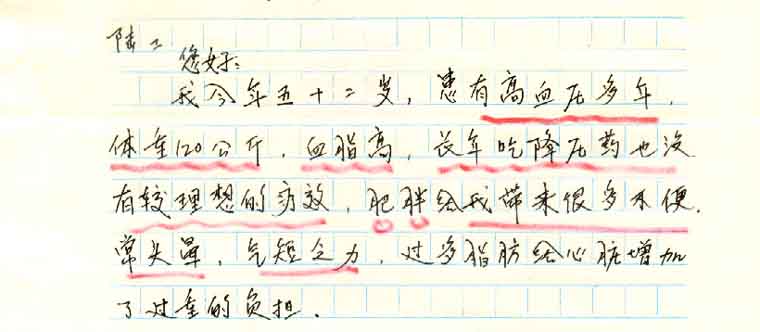 陆工
您好:
我今年五十二岁,患有高血压多年,
体重120公斤,血脂高,长年吃降压药也没
有较理想的疗效,肥胖给我带来很多不便,
常头晕,气短乏力,过多脂肪给心脏增加
了过重的负担.